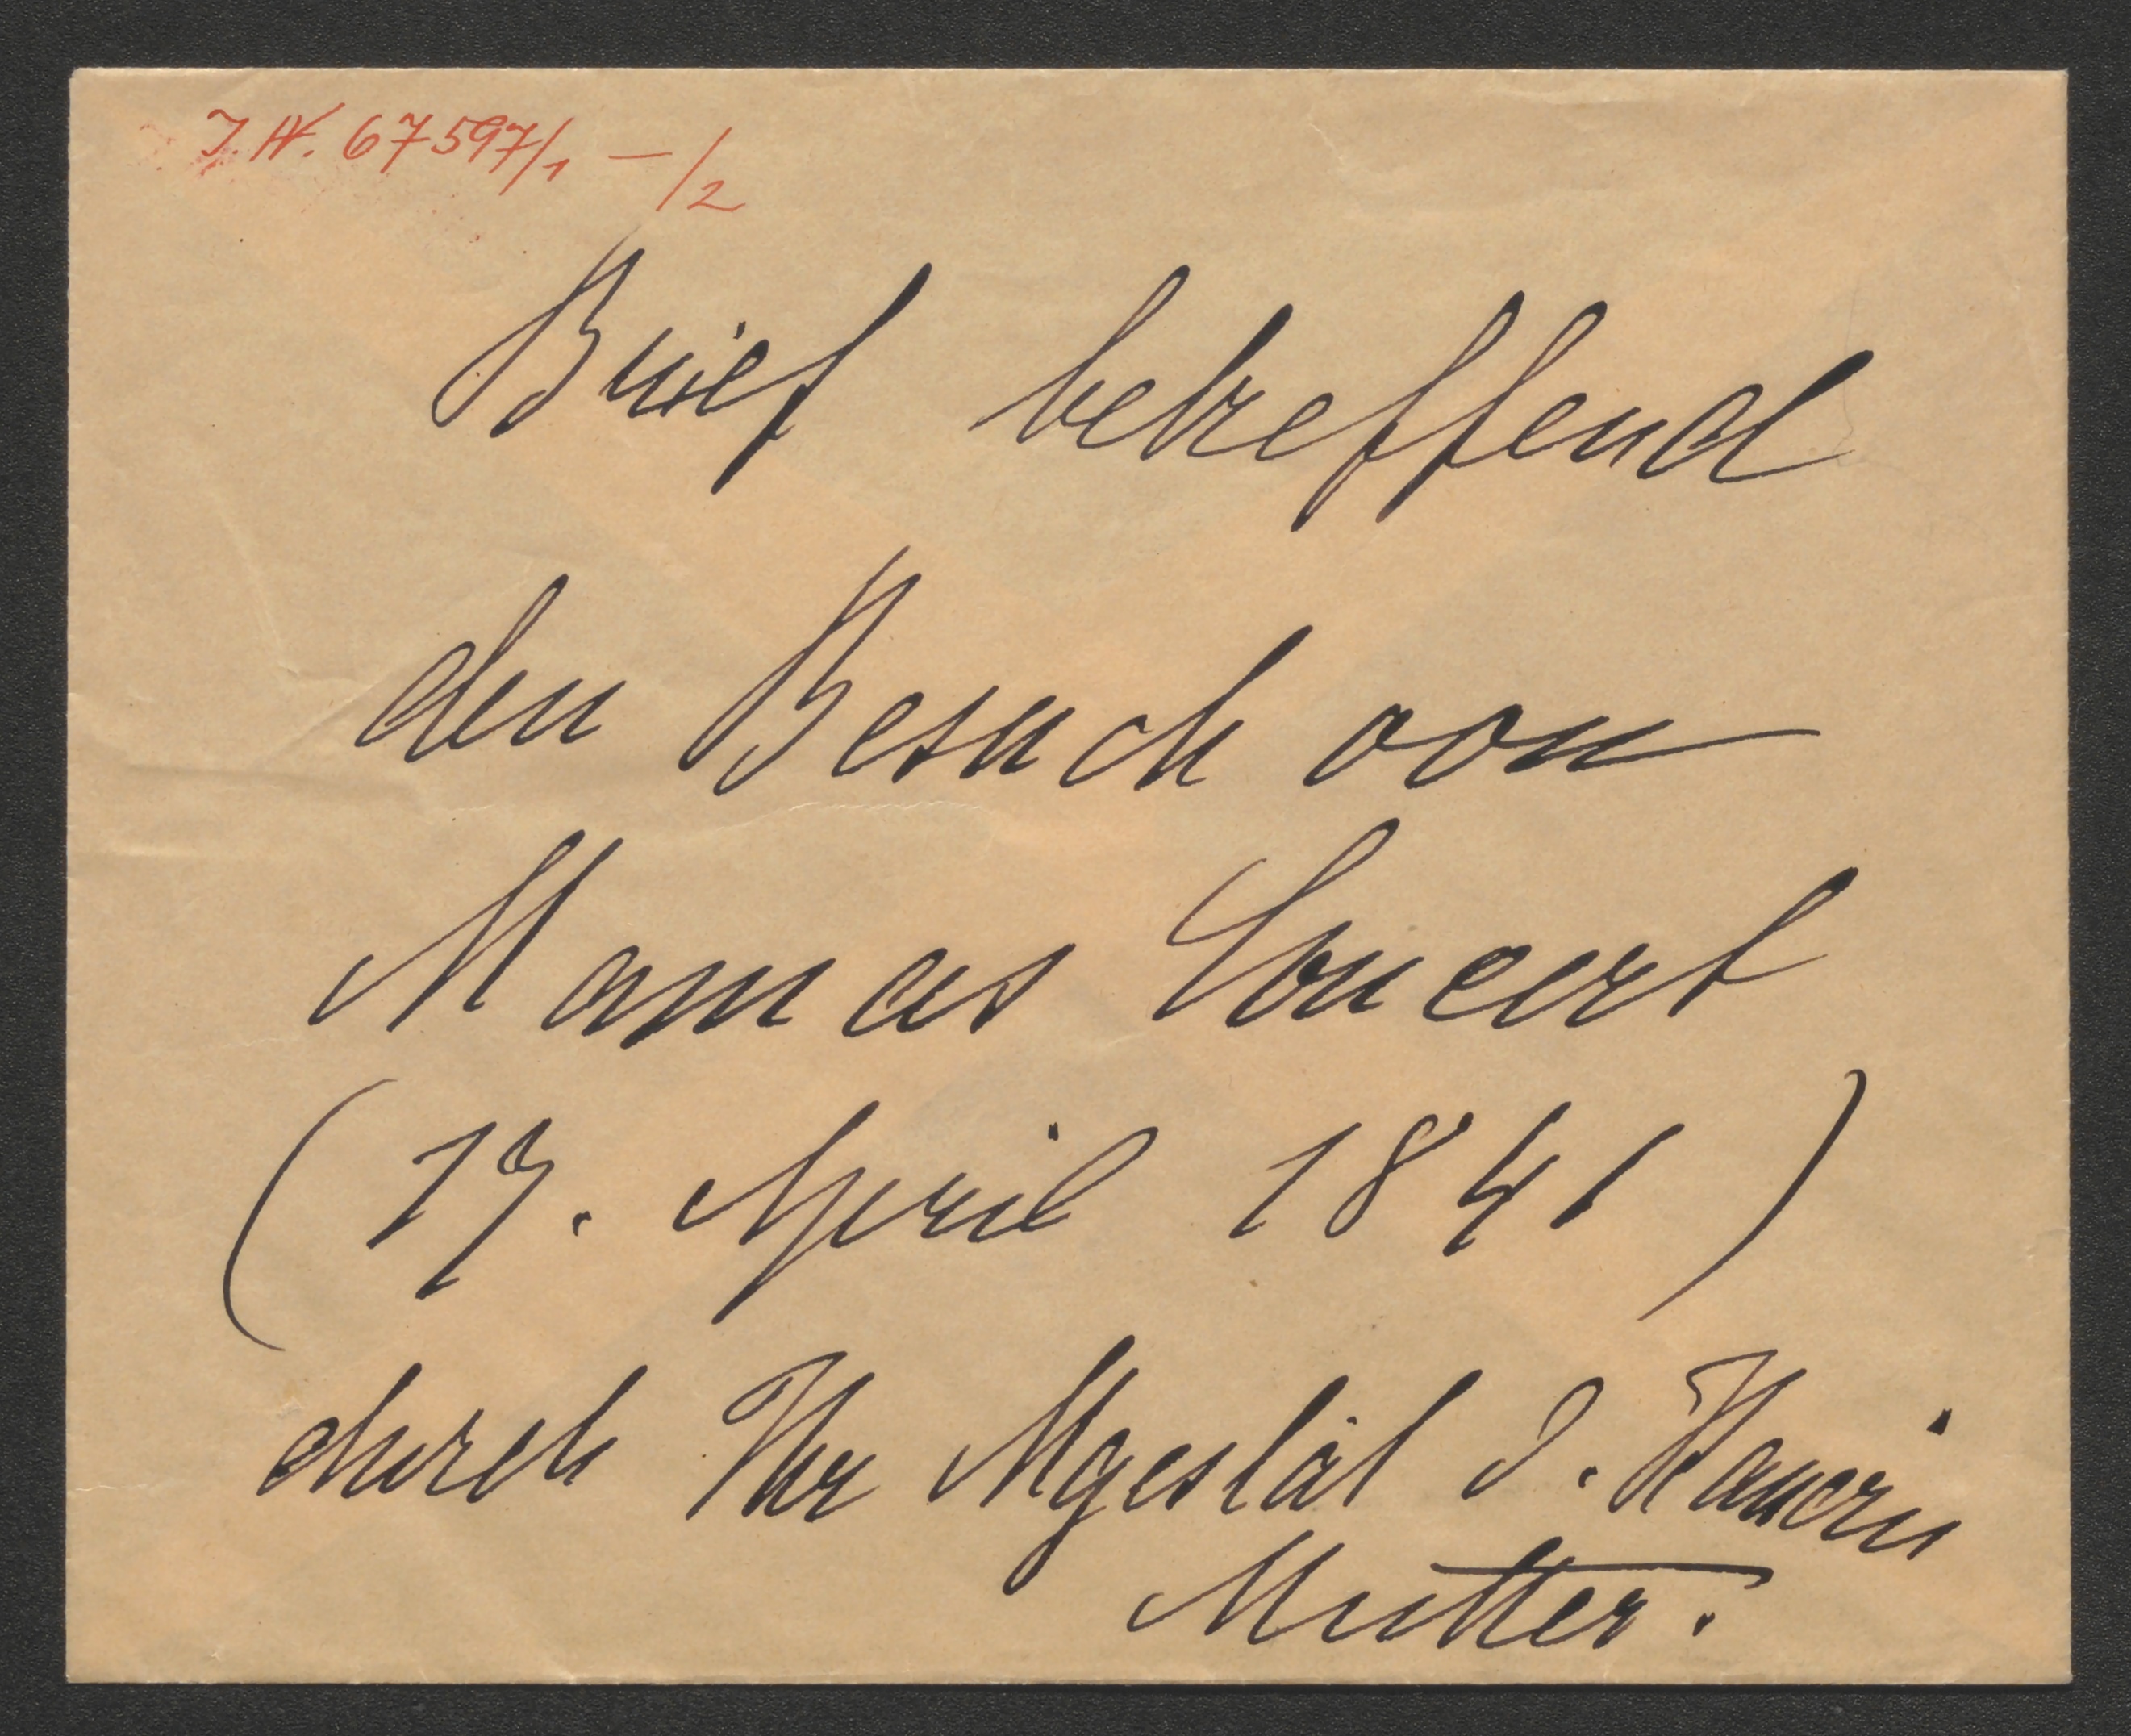 J.N. 67597/1 – /2
Brief betreffend
den Besuch von
Mamas Concert
(17. April 1841)
durch Ihr Majestät d. Kaiserin
Mutter.